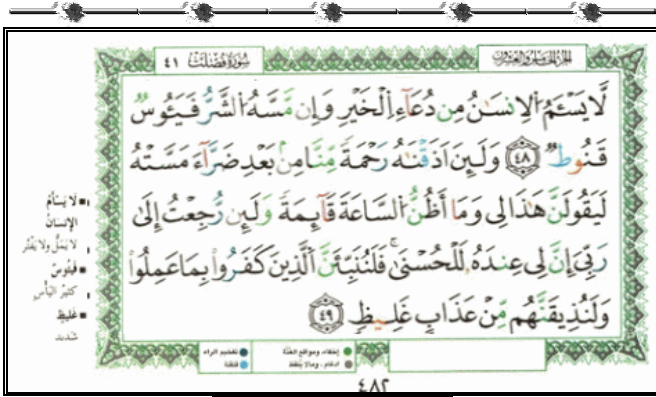 الجزء الخامس والعشرون
سُورَةُ فُصِّلَتْ ٤١
لَّا يَسْـَٔمُ اُ۬لْإِنسَٰنُ مِن دُعَآءِ اِ۬لْخَيْرِ وَإِن مَّسَّهُ اُ۬لشَّرُّ فَيَـُٔوسٞ
قَنُوطٞ ٤٨ وَلَئِنَ اَذَقْنَٰهُ رَحْمَةٗ مِّنَّا مِنۢ بَعْدِ ضَرَّآءَ مَسَّتْهُ
لَيَقُولَنَّ هَٰذَا لِي وَمَآ أَظُنُّ اُ۬لسَّاعَةَ قَآئِمَةٗ وَلَئِن رُّجِعْتُ إِلَىٰ
رَبِّيَ إِنَّ لِي عِندَهُۥ لَلْحُسْنَىٰۖ فَلَنُنَبِّئَنَّ اَ۬لَّذِينَ كَفَرُواْ بِمَا عَمِلُواْ
وَلَنُذِيقَنَّهُم مِّنْ عَذَابٍ غَلِيظٖ ٤٩
■ لَا يَسْأَمُ
الإِنسَانُ
لا يَمَلُّ ولا يَفْتُر
■ فَيَئُوسٌ
كثيرُ اليأسِ
■ غَلِيظٍ
شديد
إخفاء، ومواقع الغُنَّة
تفخيم الراء
ادغام ، ومالا يلفظ
قلقلة
٤٨٢